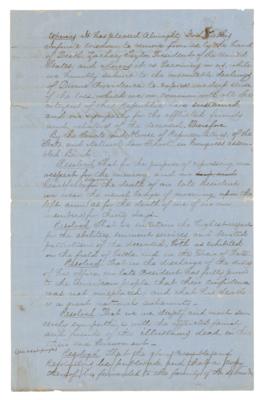 Whereas It has pleased Almighty God in His
Infinite Wisdom to remove from us by the hand
of Death Zachary Taylor President of the United
States and whereas it is becoming in us, while
we humbly submit to the inscrutable dealings
of Divine Providence to express our deep sense
of the loss which we in common with all the
citizens of this Republic have sustained
and our sympathy for the afflicted friends
and relatives of the deceased, Therefore
By the Senate and House of Representatives, of the
State and National Law School in Congress assem-
bled Be it
Resolved That for the purpose of expressing our
respect for the memory and our
for the death of our late President
we wear the usual badge of mourning upon the
left arm as for the death of one of our own
members for thirty days
Resolved That we entertain the highest respect
for the abilities, eminent services and
patriotism of the deceased, both as exhibited
on the field of battle and in the Chair of State
Resolved That in the discharge of the duties
of his office, our late President has fully proved
to the American people that their confidence
was not misplaced, and that his death
is a great national calamity.
Resolved That we deeply and most sin-
cerely sympathize with the afflicted family
and friends of the illustrious dead in this
their sad bereavement.
Resolved That the
Resolutions be and that a copy
thereof be forwarded to the family of the deceased